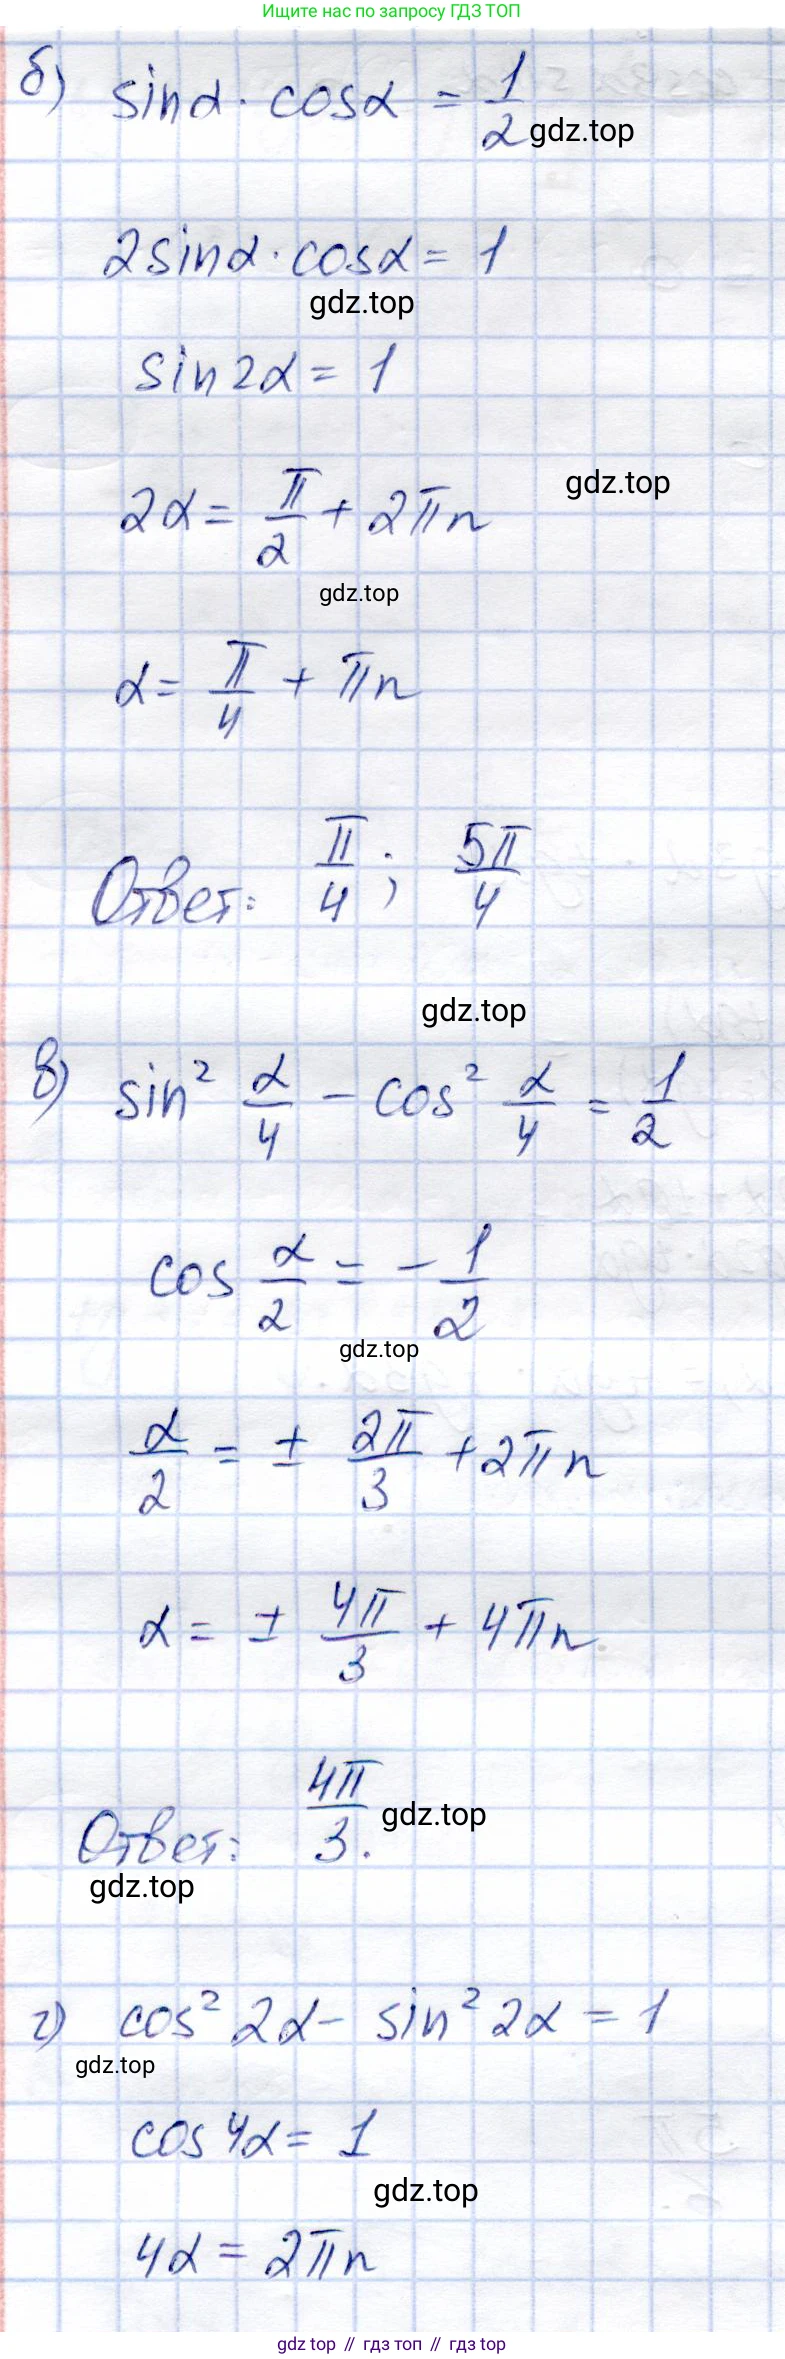 Ищите нас по запросу ГДЗ ТОП
б) sinα · cosα = 1/2
gdz.top
2sinα · cosα = 1
gdz.top
sin2α = 1
2α = π/2 + 2πn
gdz.top
gdz.top
α = π/4 + πn
Ответ: π/4; 5π/4
gdz.top
в) sin² α/4 - cos² α/4 = 1/2
cos α/2 = - 1/2
gdz.top
α/2 = ± 2π/3 + 2πn
α = ± 4π/3 + 4πn
Ответ: 4π/3.
gdz.top
gdz.top
г) cos² 2α - sin² 2α = 1
gdz.top
cos4α = 1
gdz.top
4α = 2πn
gdz top // гдз топ // гдз top